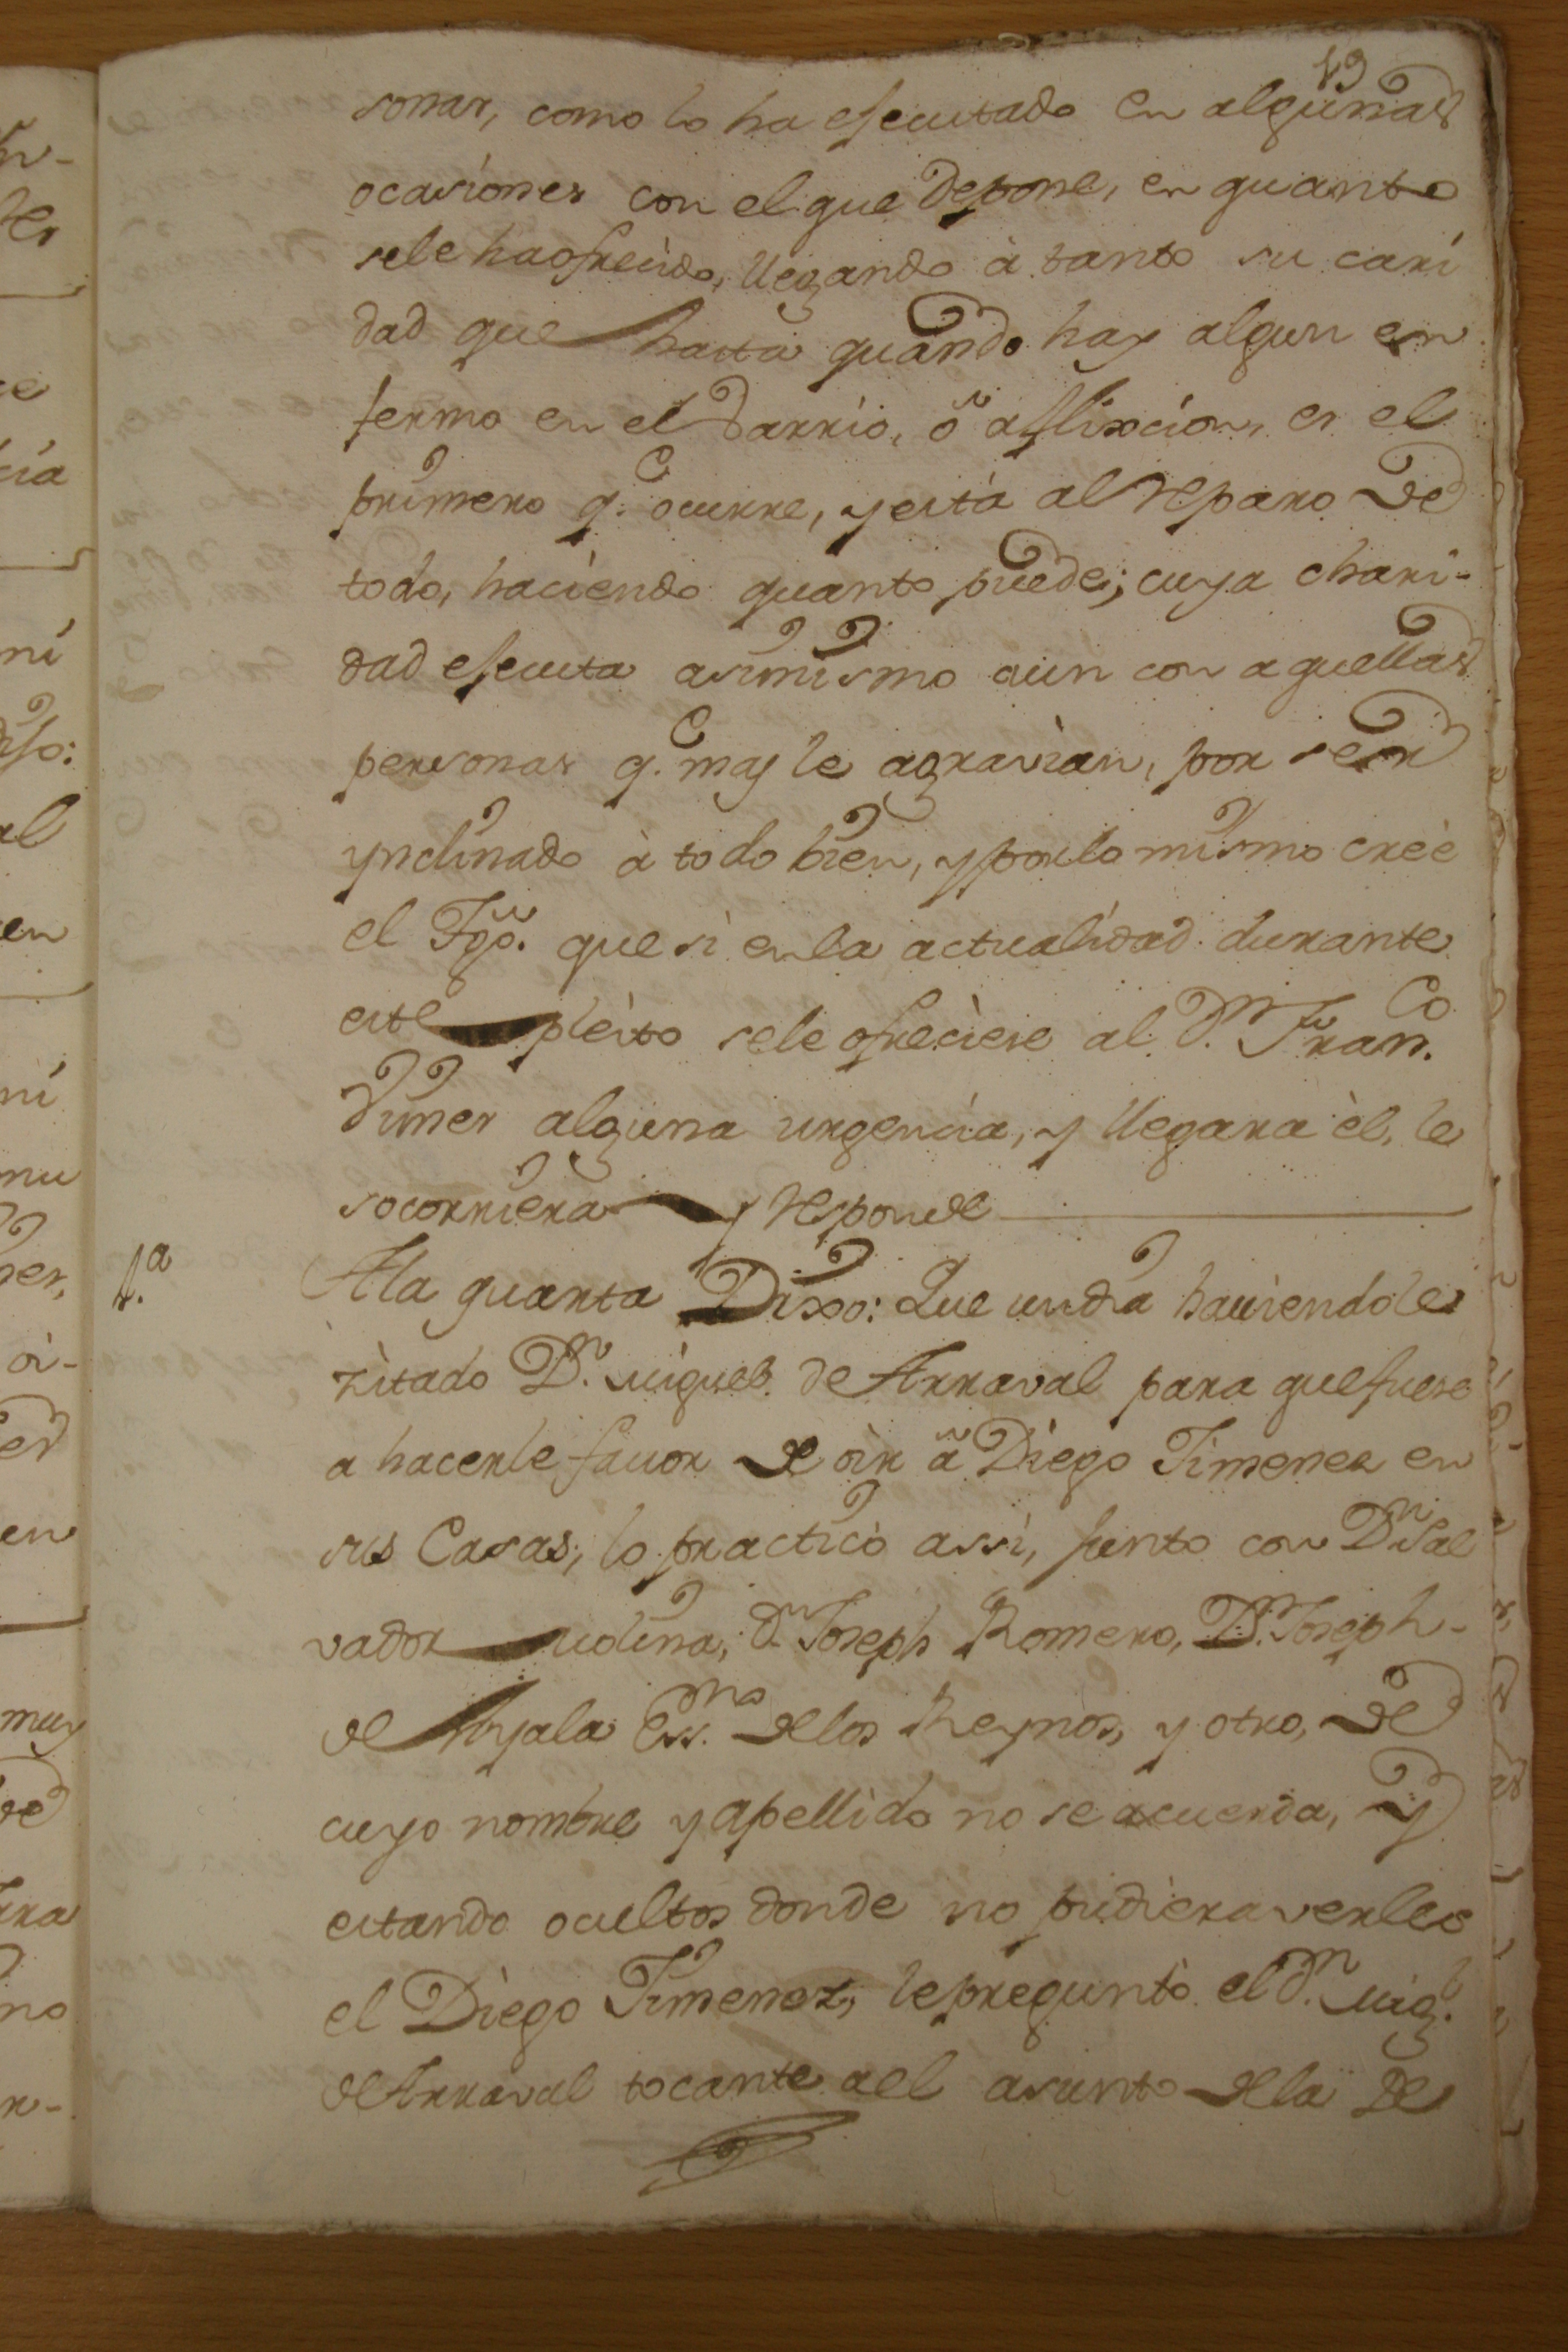 sonas, como lo ha efecutado en algunas
ocasiones con el que depone, en quanto
sele haofrecido, llegando à tanto su cari
dad que hasta quando hay algun en
fermo en el Varrio, ô aflixcion, es el
primero q.e ocurre, y està al reparo de
todo, haciendo quanto puede; cuya chari-
dad efecuta asimismo aun con aquellas
personas q.e mas le agravian, por ser
ynclinado à todo bien, y por lo mismo creè
el Tgo. que si enla actualidad durante
este pleito sele ofreciese al D.n Fran.co
Vimes alguna urgencia, y llegara èl, le
socorriera y responde
4.a
Ala quarta Dixo: Que un dia haviendole
zitado D.n Miguel de Arraval para que fuese
a hacerle favor de oir â Diego Jimenez en
sus Casas, lo practicò assi, junto con D.n Sal
vador Medina, d.n Joseph Romero, D.n Joseph
de Ayala Ess.no delos Reynos, y otro, de
cuyo nombre y apellido no se acuerda, y
estando ocultos donde no pudiera verles
el Diego Jimenez, le preguntò el D.n Mig.l
de Arraval tocante ael asunto dela De